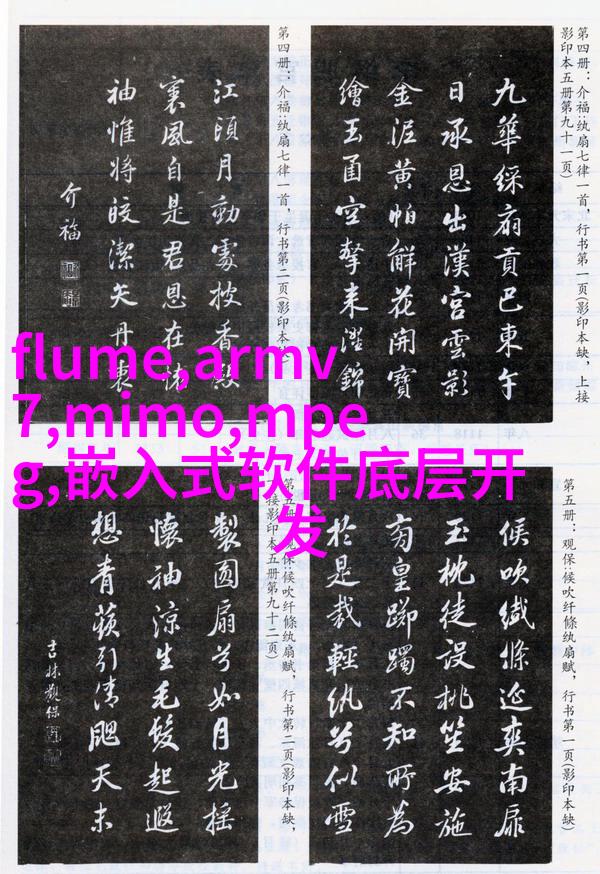 第四册：介福:纨扇七律一首，行书第一页(影印本缺，上接
影印本五册第九十一页)
九華綵扇貢巴東午
日承恩出漢宮雲影
金泥黄帕鮮花開寶
繪玉函空擎来澄錦
第四册：介福:纨扇七律一首，行书第二页(影印本缺)
江頭月動處披香殿
裏風自是君恩在
袖惟将皎潔矢丹衷
介福
flume,armv
7,mimo,mpe
g,嵌入式软件底层开
发
第五册：观保:候吹纤條纨扇赋，行书第一页(影印本缺)
候吹纖絛延爽南扉
玉枕徒設桃笙安施
有皇躑躅不知所為
於是裁輕纨兮似雪
第五册：观保:候吹纤條纨扇赋，行书第二页(影印本缺，
接影印本五册第九十二页)
製圆扇兮如月光摇
懷袖涼生毛髮起遐
想青蘋引清颸天末
吉林觀保